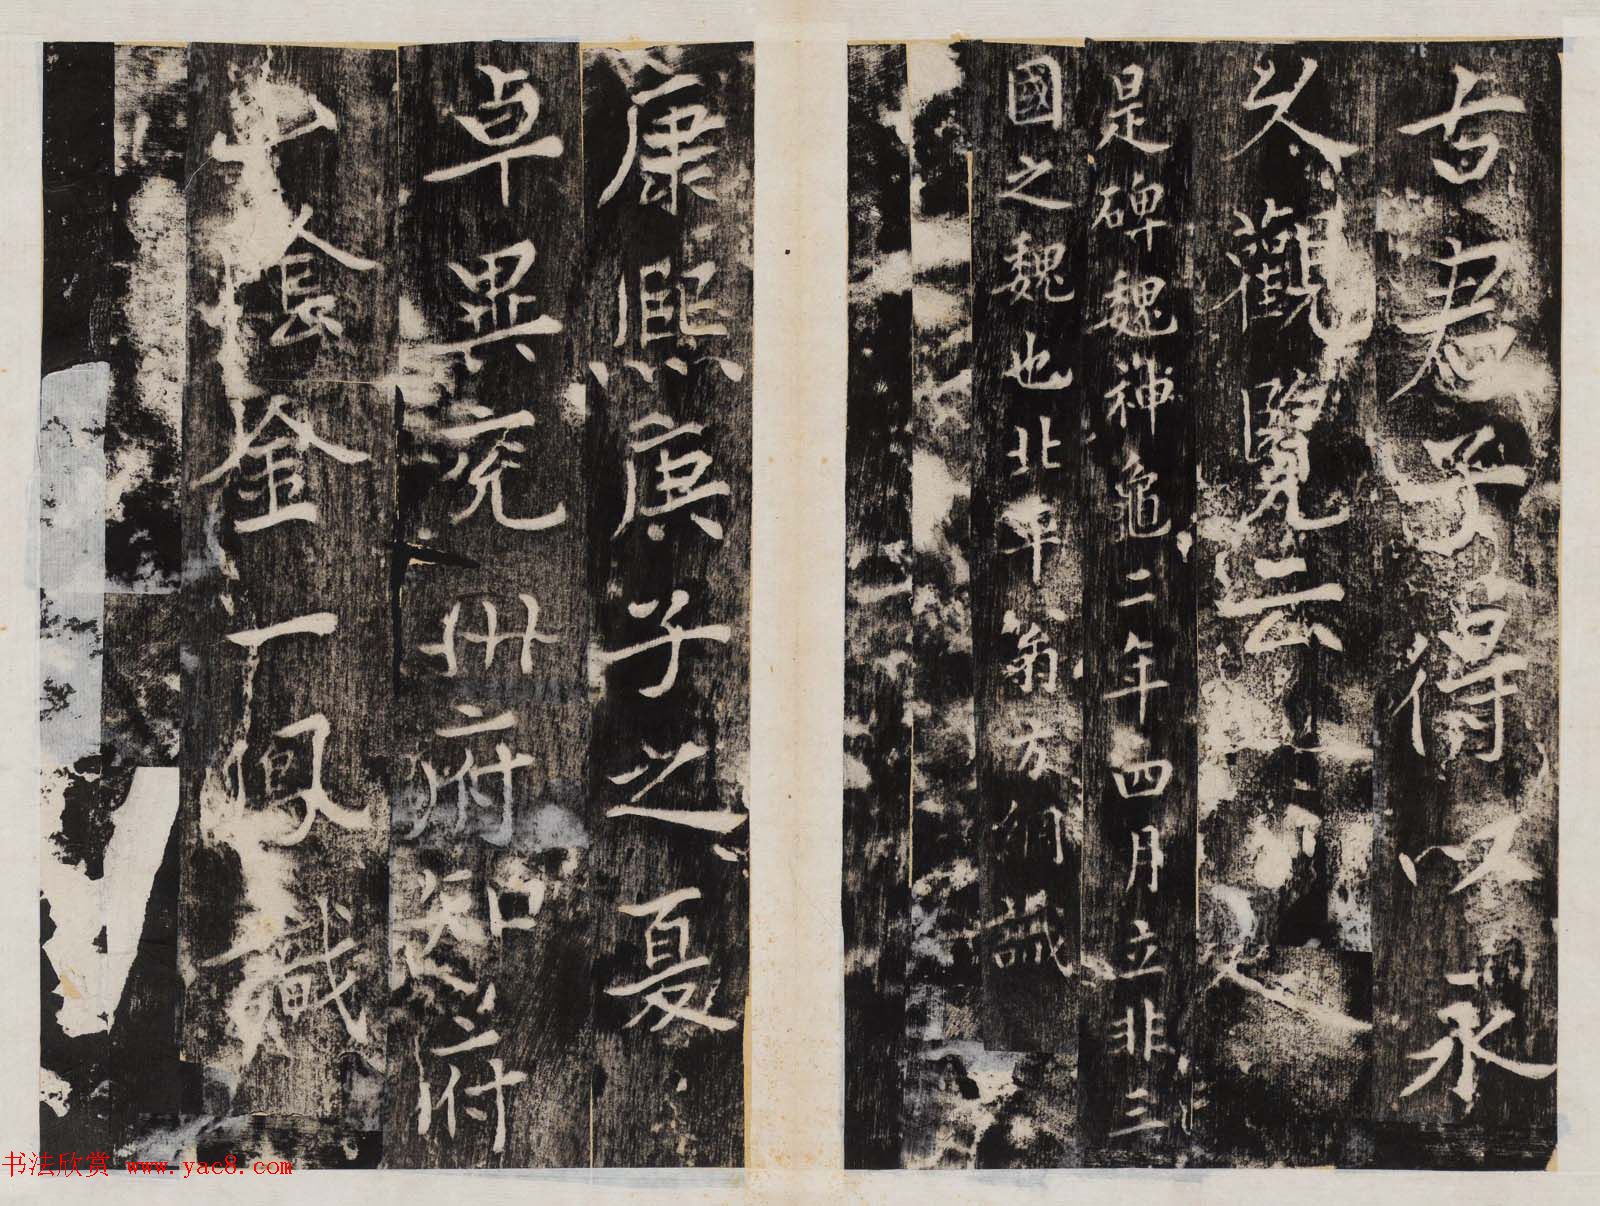 古君子得以永
久觀覽云
是碑魏神龜二年四月立非三
國之魏也北平翁方綱識
康熙庚子之夏
卓異兖州府知府
山陰金一鳳識
书法欣赏 www.yac8.com